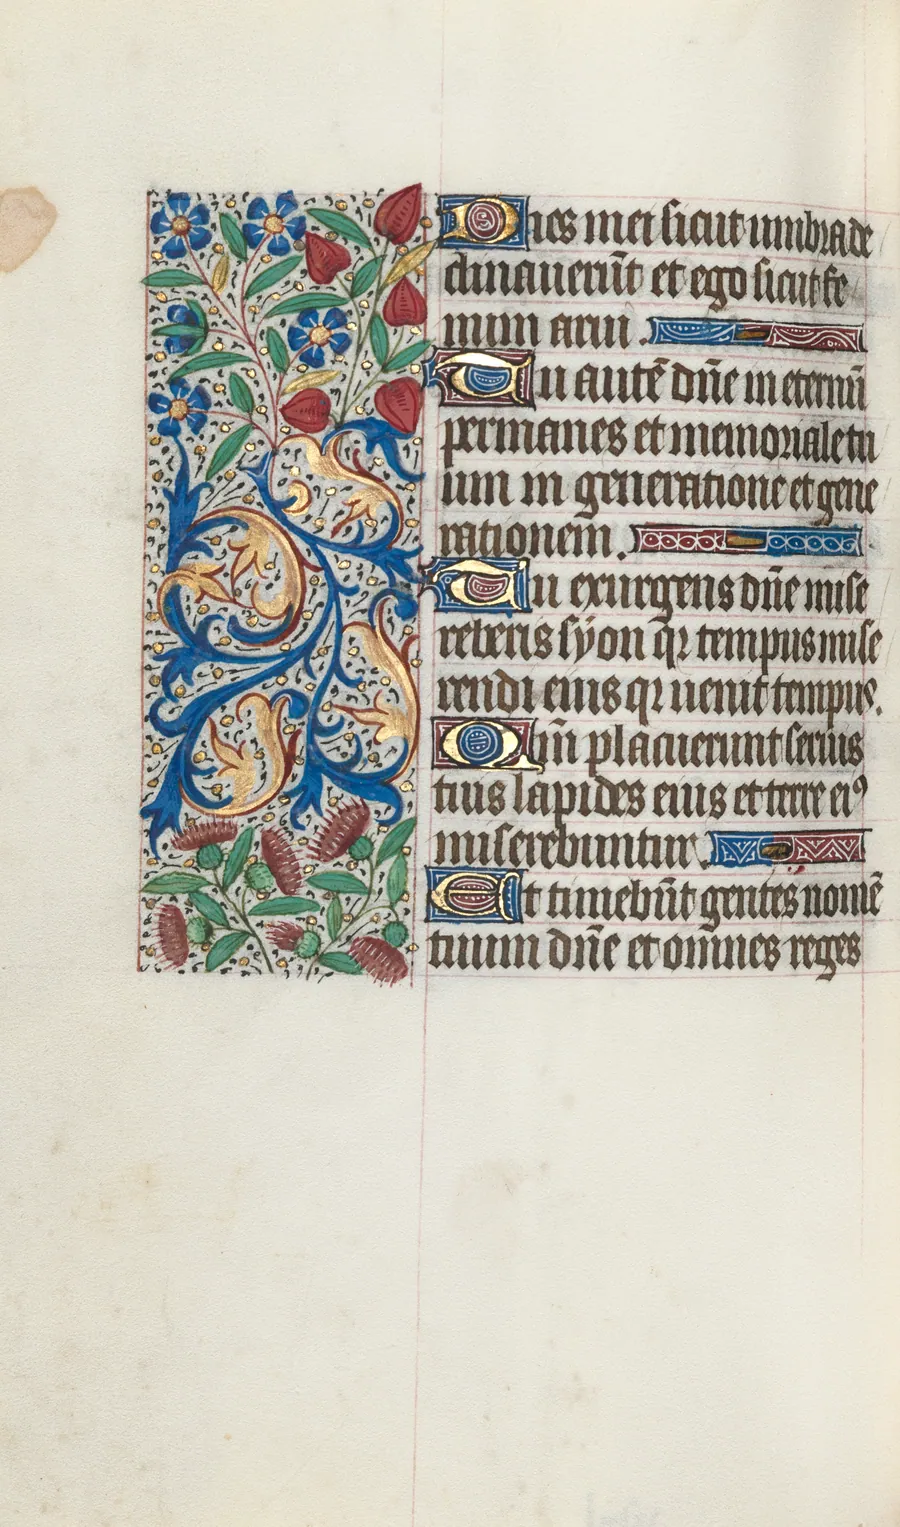 Dies mei sicut umbra de
clinauerūt et ego sicut fe
num arui.
Tu autē dn̄e in eternū
permanes et memoriale tu
um in generatione et gene
rationem.
Tu exurgens dn̄e mise
reberis syon qr tempus mise
rendi eius qr uenit tempus.
Qm̄ placuerunt seruis
tuis lapides eius et terre eiꝰ
miserebuntur.
Et timebūt gentes nomē
tuum dn̄e et omnes reges